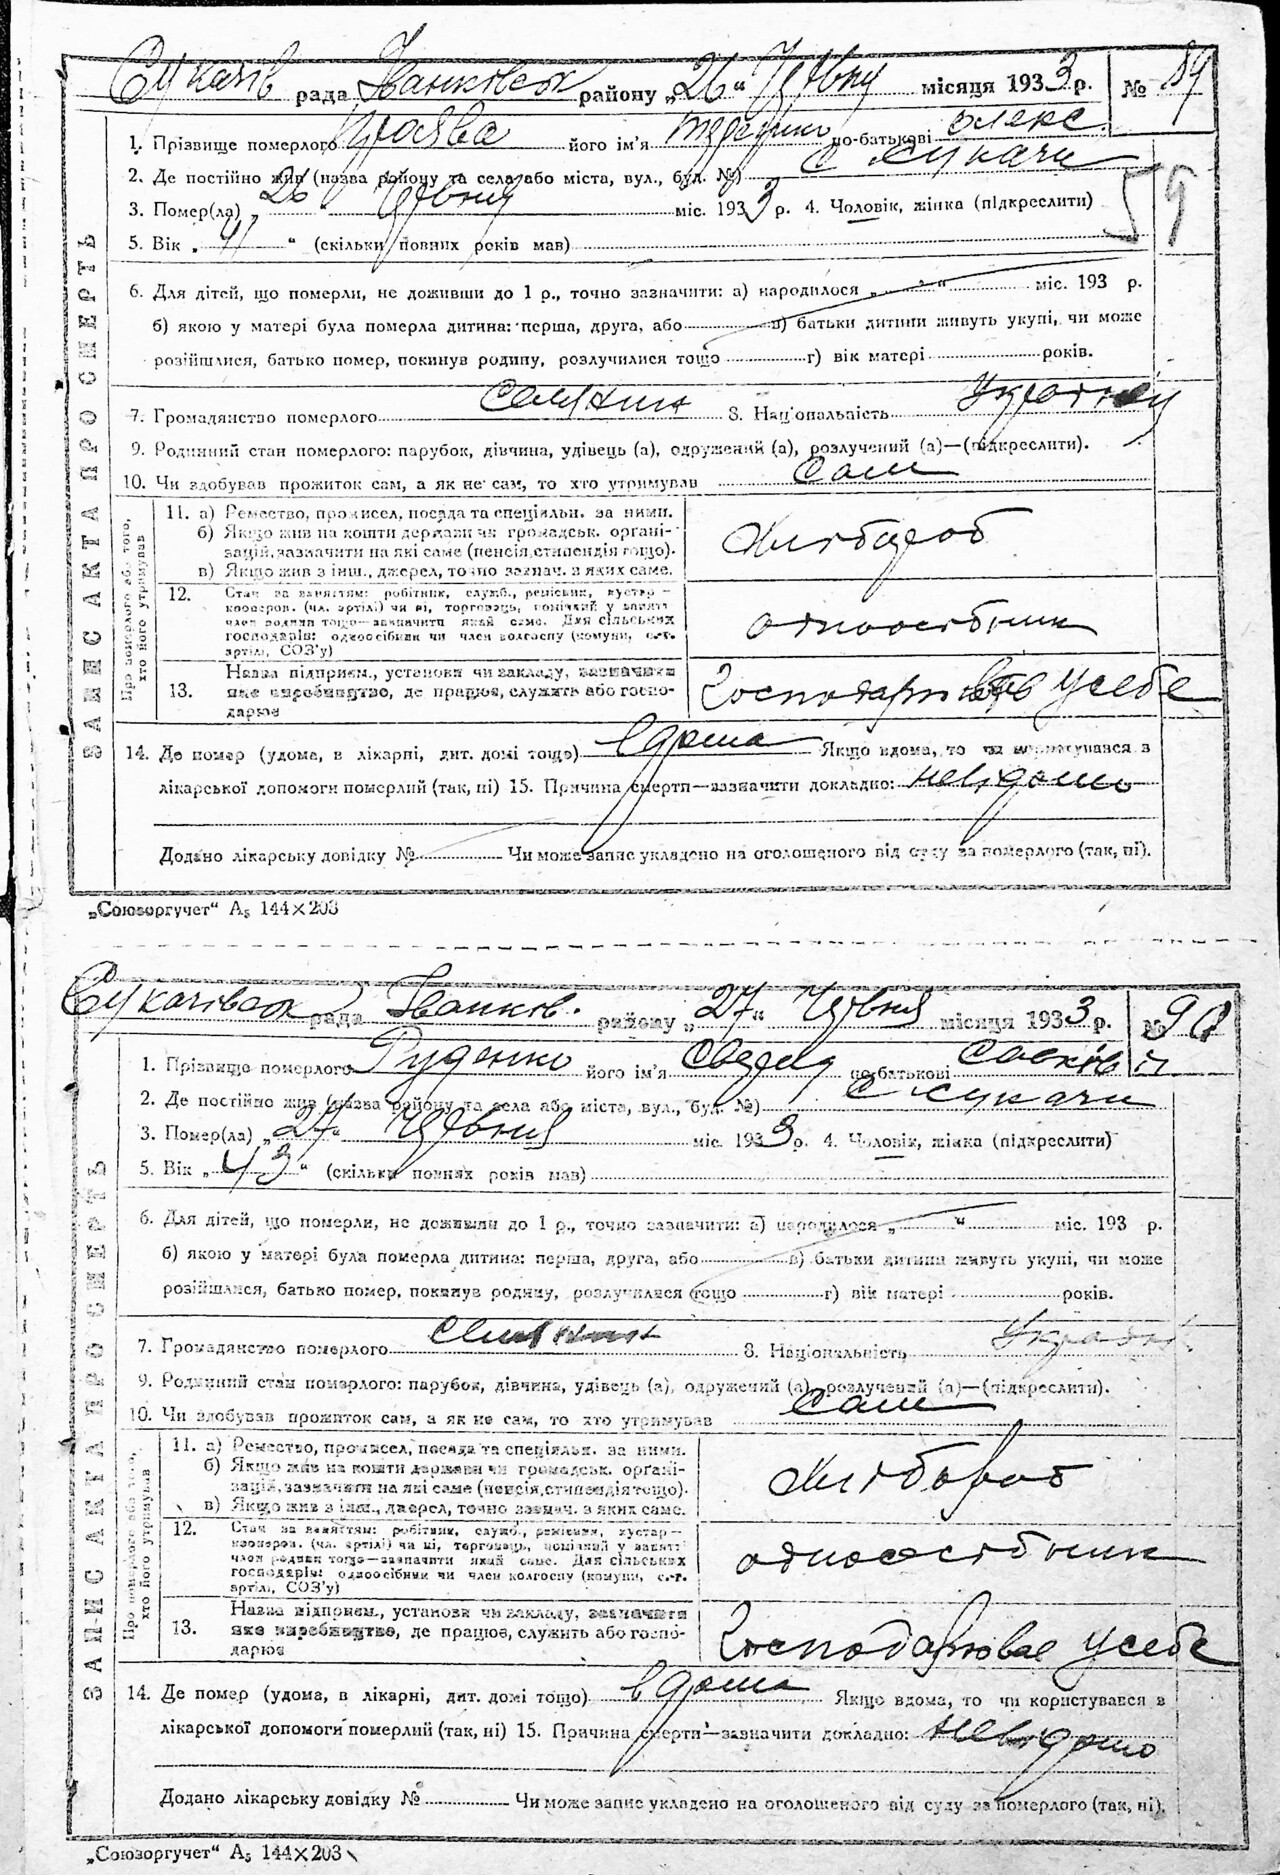 Сукачів рада Іванківськ району „26“ Червня місяця 1933 р. № 89
1. Прізвище померлого його ім'я по-батькові Олекс.
2. Де постійно жив (назва району та села або міста, вул., буд. №) с Сукачи
3. Помер(ла) „26“ Червня міс. 1933 р. 4. Чоловік, жінка (підкреслити)
59
5. Вік „41“ (скільки повних років мав)
6. Для дітей, що померли, не доживши до 1 р., точно зазначити: а) народилося „ “ міс. 193 р.
б) якою у матері була померла дитина: перша, друга, або в) батьки дитини живуть укупі, чи може
розійшлися, батько помер, покинув родину, розлучилися тощо г) вік матері років.
7. Громадянство померлого Селянин 8. Національність
9. Родинний стан померлого: парубок, дівчина, удівець (а), одружений (а), розлучений (а)—(підкреслити).
10. Чи здобував прожиток сам, а як не сам, то хто утримував Сам
ЗАПИС АКТА ПРО СМЕРТЬ
Про померлого або того, хто його утримував
11. а) Ремество, промисел, посада та спеціяльн. за ними.
б) Якщо жив на кошти держави чи громадськ. органі-
зацій, зазначити на які саме (пенсія, стипендія тощо).
в) Якщо жив з інш., джерел, точно зазнач. з яких саме.
Хлібороб
12. Стан за заняттям: робітник, служб., ремісник, кустар—
кооперов. (чл. артілі) чи ні, торговець, помічний у занятт
член родини тощо—зазначити який саме. Для сільських
господарів: одноосібник чи член колгоспу (комуни, с.-г.
артілі, СОЗ'у)
одноосібник
13. Назва підприєм., установи чи закладу, зазначити
яке виробництво, де працює, служить або госпо-
дарює
у себе
14. Де помер (удома, в лікарні, дит. домі тощо) вдома Якщо вдома, то чи користувався в
лікарської допомоги померлий (так, ні) 15. Причина смерти—зазначити докладно: невідомо
Додано лікарську довідку № Чи може запис укладено на оголошеного від суду за померлого (так, ні).
„Союзоргучет“ А₅ 144×203
Сукачівськ рада Іванків. району „27“ Червня місяця 1933 р. № 90
1. Прізвище померлого Руденко його ім'я по-батькові
2. Де постійно жив (назва району та села або міста, вул., буд. №) с Сукачи
3. Помер(ла) „27“ Червня міс. 1933 р. 4. Чоловік, жінка (підкреслити)
5. Вік „43“ (скільки повних років мав)
6. Для дітей, що померли, не доживши до 1 р., точно зазначити: а) народилося „ “ міс. 193 р.
б) якою у матері була померла дитина: перша, друга, або в) батьки дитини живуть укупі, чи може
розійшлися, батько помер, покинув родину, розлучилися тощо г) вік матері років.
7. Громадянство померлого Селянин 8. Національність
9. Родинний стан померлого: парубок, дівчина, удівець (а), одружений (а), розлучений (а)—(підкреслити).
10. Чи здобував прожиток сам, а як не сам, то хто утримував Сам
ЗАПИС АКТА ПРО СМЕРТЬ
Про померлого або того, хто його утримував
11. а) Ремество, промисел, посада та спеціяльн. за ними.
б) Якщо жив на кошти держави чи громадськ. органі-
зацій, зазначити на які саме (пенсія, стипендія тощо).
в) Якщо жив з інш., джерел, точно зазнач. з яких саме.
Хлібороб
12. Стан за заняттям: робітник, служб., ремісник, кустар—
кооперов. (чл. артілі) чи ні, торговець, помічний у занятт
член родини тощо—зазначити який саме. Для сільських
господарів: одноосібник чи член колгоспу (комуни, с.-г.
артілі, СОЗ'у)
одноосібник
13. Назва підприєм., установи чи закладу, зазначити
яке виробництво, де працює, служить або госпо-
дарює
Господарював у себе
14. Де помер (удома, в лікарні, дит. домі тощо) вдома Якщо вдома, то чи користувався в
лікарської допомоги померлий (так, ні) 15. Причина смерти—зазначити докладно: невідомо
Додано лікарську довідку № Чи може запис укладено на оголошеного від суду за померлого (так, ні).
„Союзоргучет“ А₅ 144×203